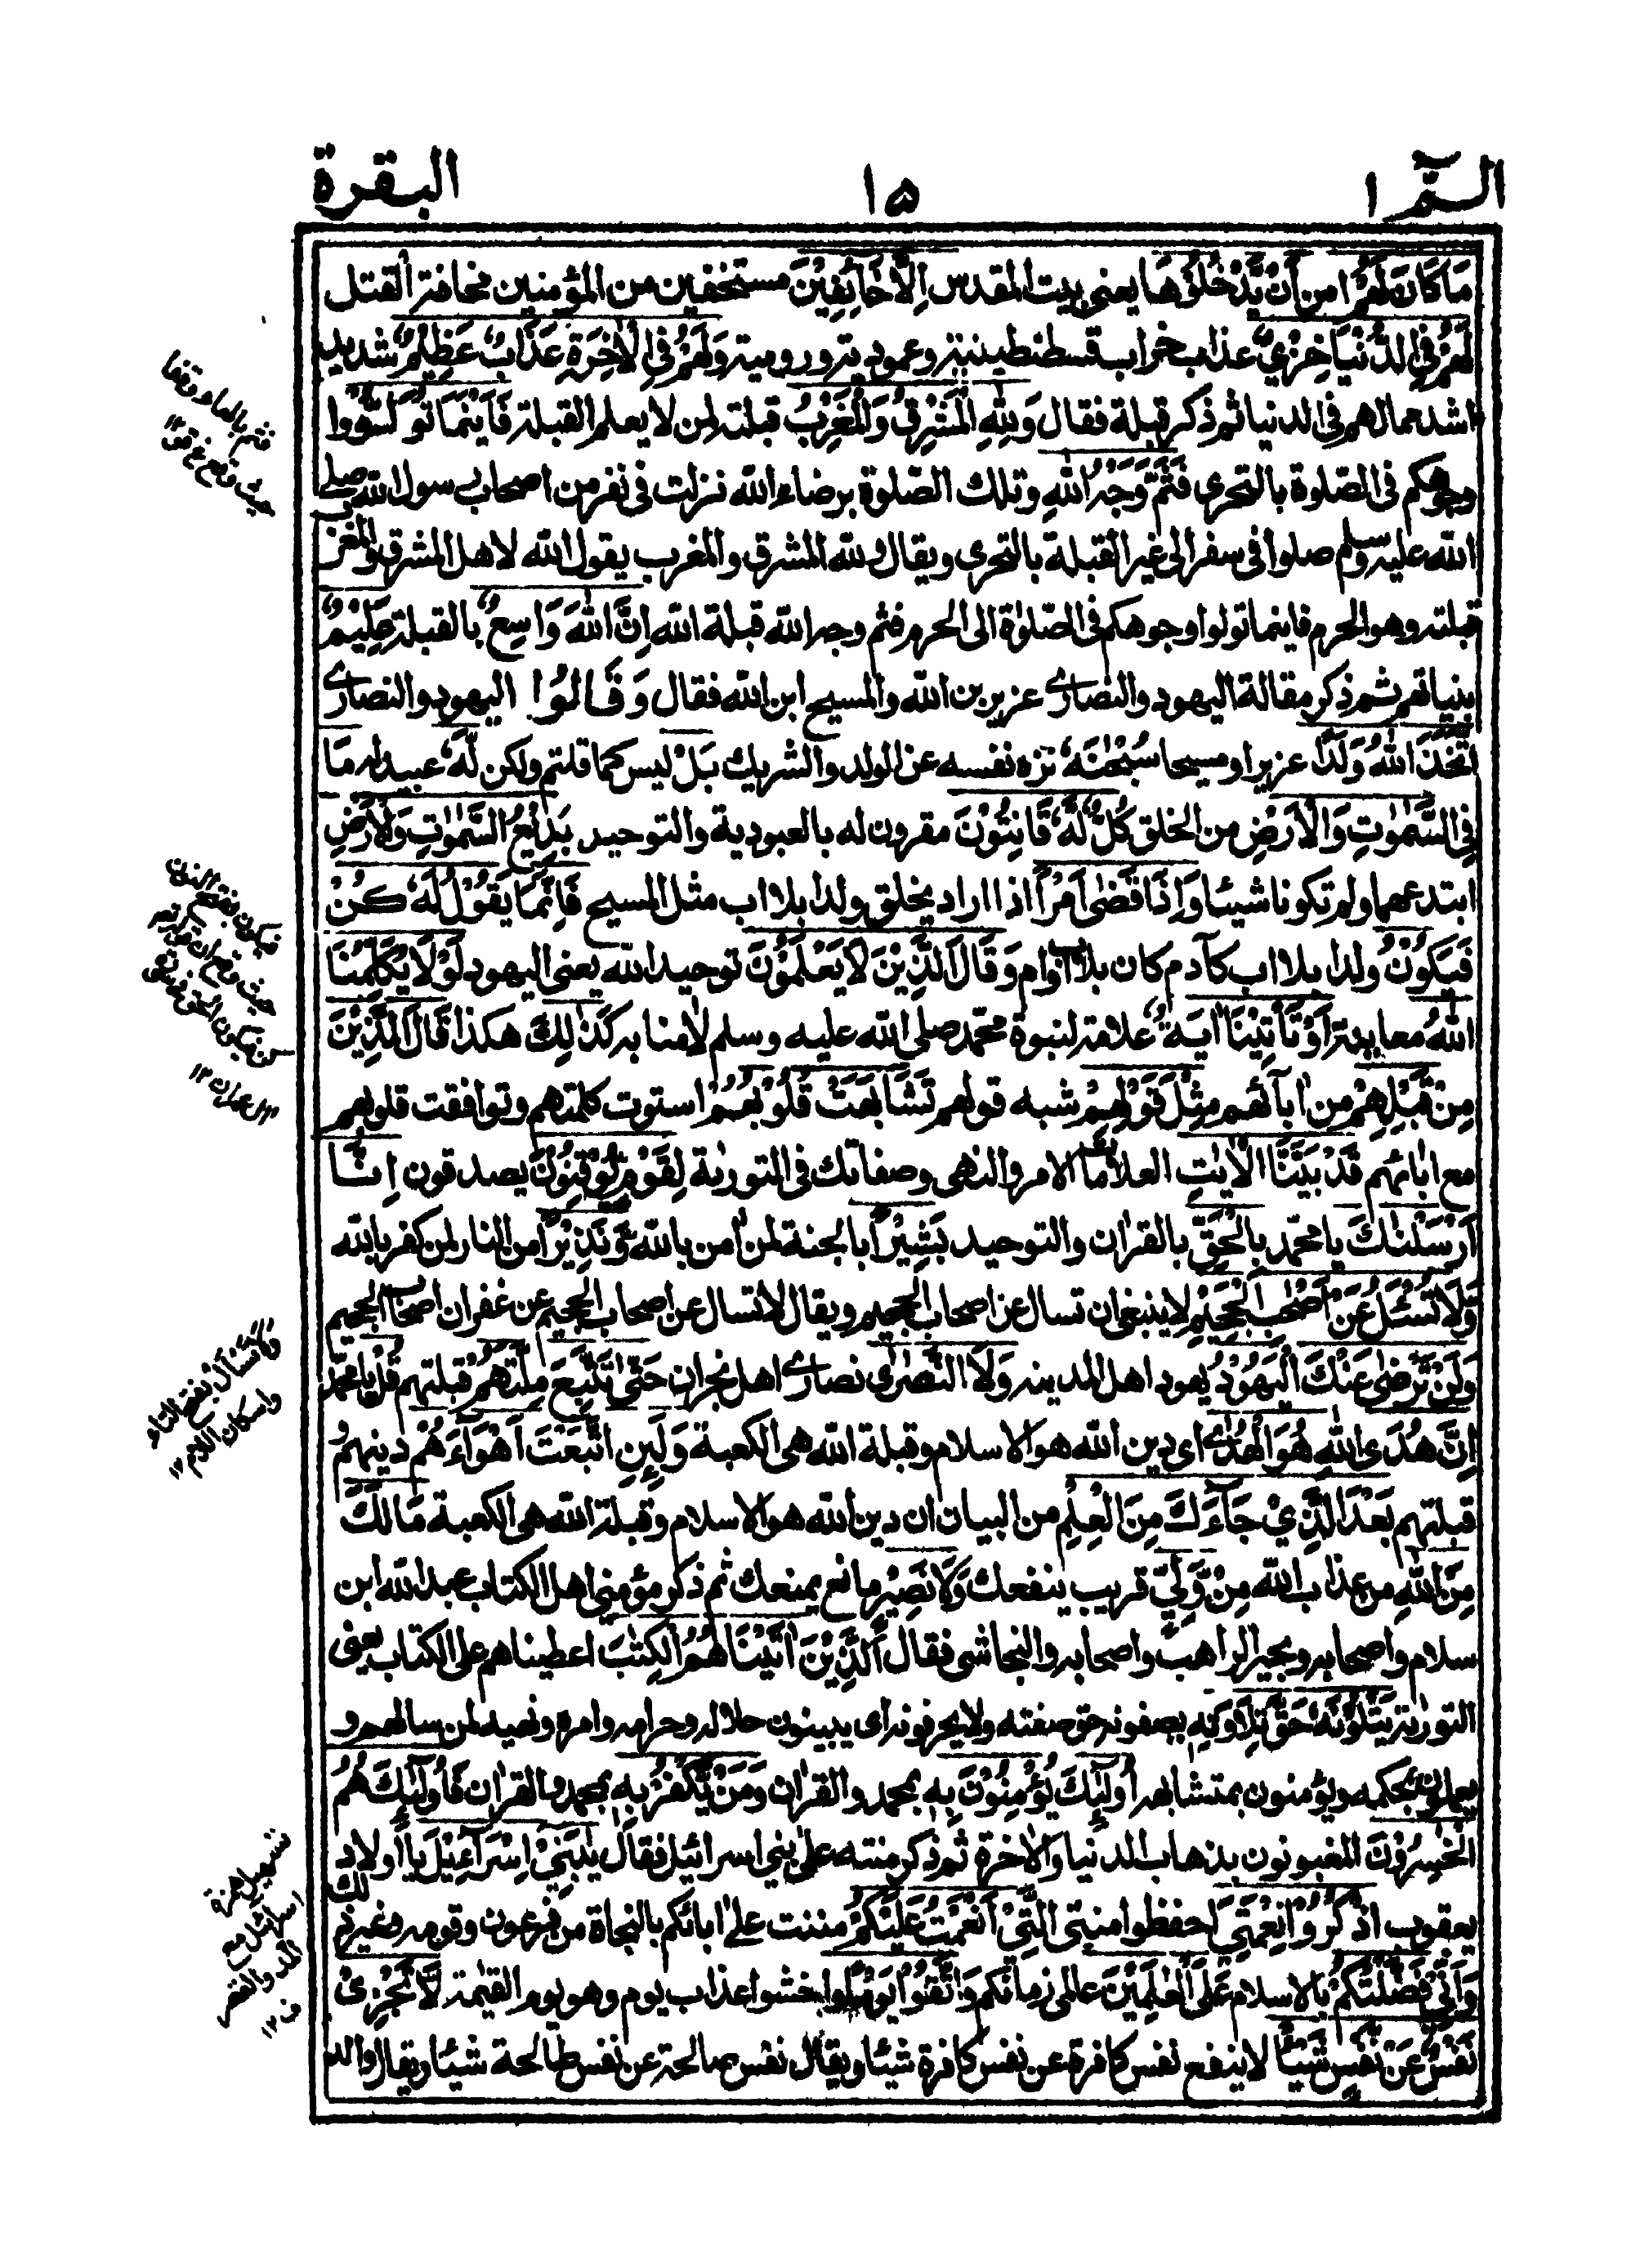 الٓمّٓ ١
١٥
البقرة
مَا كَانَ لَهُمْ امن اَنْ يَّدْخُلُوْهَا يعنى بيت المقدس اِلَّا خَآئِفِيْنَ مستخفين من المؤمنين مخافة القتل
لَهُمْ فِى الدُّنْيَا خِزْيٌ عذاب خراب قسطنطينية وعمودية ورومية وَلَهُمْ فِى الْاٰخِرَةِ عَذَابٌ عَظِيْمٌ شديد
اشد ممالهم فى الدنيا ثم ذكر قبلة فقال وَلِلّٰهِ الْمَشْرِقُ وَالْمَغْرِبُ قبلته لمن لا يعلم القبلة فَاَيْنَمَا تُوَلُّوْا
وجوهكم فى الصّلوة بالتحرى فَثَمَّ وَجْهُ اللّٰهِ وتلك الصّلوة برضاء الله نزلت فى نفر من اصحاب رسول الله صلى
الله عليه وسلم صلوا فى سفر الى غير القبلة بالتحرى ويقال ولله المشرق والمغرب يقول الله لاهل المشرق والمغرب
قبلته وهو الحرم فاينما تولوا وجوهكم فى الصّلوٰة الى الحرم فثم وجه الله قبلة الله اِنَّ اللّٰهَ وَاسِعٌ بالقبلة عَلِيْمٌ
بنياتهم ثم ذكر مقالة اليهود والنصارى عزير بن الله والمسيح ابن الله فقال وَقَالُوْا اليهود والنصارى
اتَّخَذَ اللّٰهُ وَلَدًا عزيرا ومسيحا سُبْحٰنَهٗ نزه نفسه عن الولد والشريك بَلْ ليس كما قلتم ولكن لَّهٗ عبيداله مَا
فِى السَّمٰوٰتِ وَالْاَرْضِ من الخلق كُلٌّ لَّهٗ قَانِتُوْنَ مقرون له بالعبودية والتوحيد بَدِيْعُ السَّمٰوٰتِ وَالْاَرْضِ
ابتدعهما ولم تكونا شيئا وَاِذَا قَضٰى اَمْرًا اذا اراد يخلق ولدا بلا اب مثل المسيح فَاِنَّمَا يَقُوْلُ لَهٗ كُنْ
فَيَكُوْنُ ولدا بلا اب كآدم كان بلا اب وام وَقَالَ الَّذِيْنَ لَا يَعْلَمُوْنَ توحيد الله يعنى اليهود لَوْلَا يُكَلِّمُنَا
اللّٰهُ معاينة اَوْ تَاْتِيْنَا اٰيَةٌ علامة لنبوة محمّد صلى الله عليه وسلم لاٰمنا به كَذٰلِكَ هكذا قَالَ الَّذِيْنَ
مِنْ قَبْلِهِمْ من اٰبآئهم مِثْلَ قَوْلِهِمْ شبه قولهم تَشَابَهَتْ قُلُوْبُهُمْ استوت كلمتهم وتوافقت قلوبهم
مع اٰبائهم قَدْ بَيَّنَّا الْاٰيٰتِ العلامات الامر والنهى وصفاتك فى التورىٰة لِقَوْمٍ يُّوْقِنُوْنَ يصدقون اِنَّا
اَرْسَلْنٰكَ يا محمّد بِالْحَقِّ بالقراٰن والتوحيد بَشِيْرًا بالجنة لمن اٰمن بالله وَّنَذِيْرًا من النار لمن كفر بالله
وَّلَا تُسْئَلُ عَنْ اَصْحٰبِ الْجَحِيْمِ لا ينبغى ان تسال عن اصحاب الجحيم ويقال لا تسال عن اصحاب الجحيم عن غفران اصحاب الجحيم
وَلَنْ تَرْضٰى عَنْكَ الْيَهُوْدُ يهود اهل المدينه وَلَا النَّصٰرٰى نصارى اهل نجران حَتّٰى تَتَّبِعَ مِلَّتَهُمْ قبلتهم قُلْ يا محمّد
اِنَّ هُدَى اللّٰهِ هُوَ الْهُدٰى اى دين الله هو الاسلام وقبلة الله هى الكعبة وَلَئِنِ اتَّبَعْتَ اَهْوَآءَهُمْ دينهم و
قبلتهم بَعْدَ الَّذِيْ جَآءَكَ مِنَ الْعِلْمِ من البيان ان دين الله هو الاسلام وقبلة الله هى الكعبة مَالَكَ
مِنَ اللّٰهِ من عذاب الله مِنْ وَّلِيٍّ قريب ينفعك وَّلَا نَصِيْرٍ مانع يمنعك ثم ذكر مؤمنى اهل الكتاب عبد الله ابن
سلام واصحابه وبحيرا الراهب واصحابه والنجاشى فقال اَلَّذِيْنَ اٰتَيْنَاهُمُ الْكِتٰبَ اعطيناهم على الكتاب يعنى
التورٰية يَتْلُوْنَهٗ حَقَّ تِلَاوَتِهٖ يصفونه حق صفته ولا يحرفونه اى يبينون حلاله وحرامه وامره ونهيه لمن سالهم و
يعملون بمحكمه ويؤمنون بمتشابهه اُولٰٓئِكَ يُؤْمِنُوْنَ بِهٖ بمحمد والقراٰن وَمَنْ يَّكْفُرْ بِهٖ بمحمد والقراٰن فَاُولٰٓئِكَ هُمُ
الْخٰسِرُوْنَ المغبونون بذهاب الدنيا والاٰخرة ثم ذكر منته على بنى اسرائيل فقال يٰبَنِيْ اِسْرَآءِيْلَ يا اولاد
يعقوب اذْكُرُوْا نِعْمَتِيَ احفظوا منتى الَّتِيْ اَنْعَمْتُ عَلَيْكُمْ مننت على اٰبائكم بالنجاة من فرعون وقومه وغير ذلك
وَاَنِّيْ فَضَّلْتُكُمْ بالاسلام عَلَى الْعٰلَمِيْنَ عالمى زمانكم وَاتَّقُوْا يَوْمًا واخشوا عذاب يوم وهو يوم القيٰمة لَّا تَجْزِيْ
نَفْسٌ عَنْ نَّفْسٍ شَيْئًا لا ينفع نفس كافرة عن نفس كافرة شيئا ويقال نفس صالحة عن نفس طالحة شيئا ويقال والد
فثم بالهاء وقفا
حيث وقع
فيكون بفتح النون
ولا تسأل بفتح التاء
واسكان اللام ١٢
تسهيل همزة
اسرائيل مع
المد والقصر